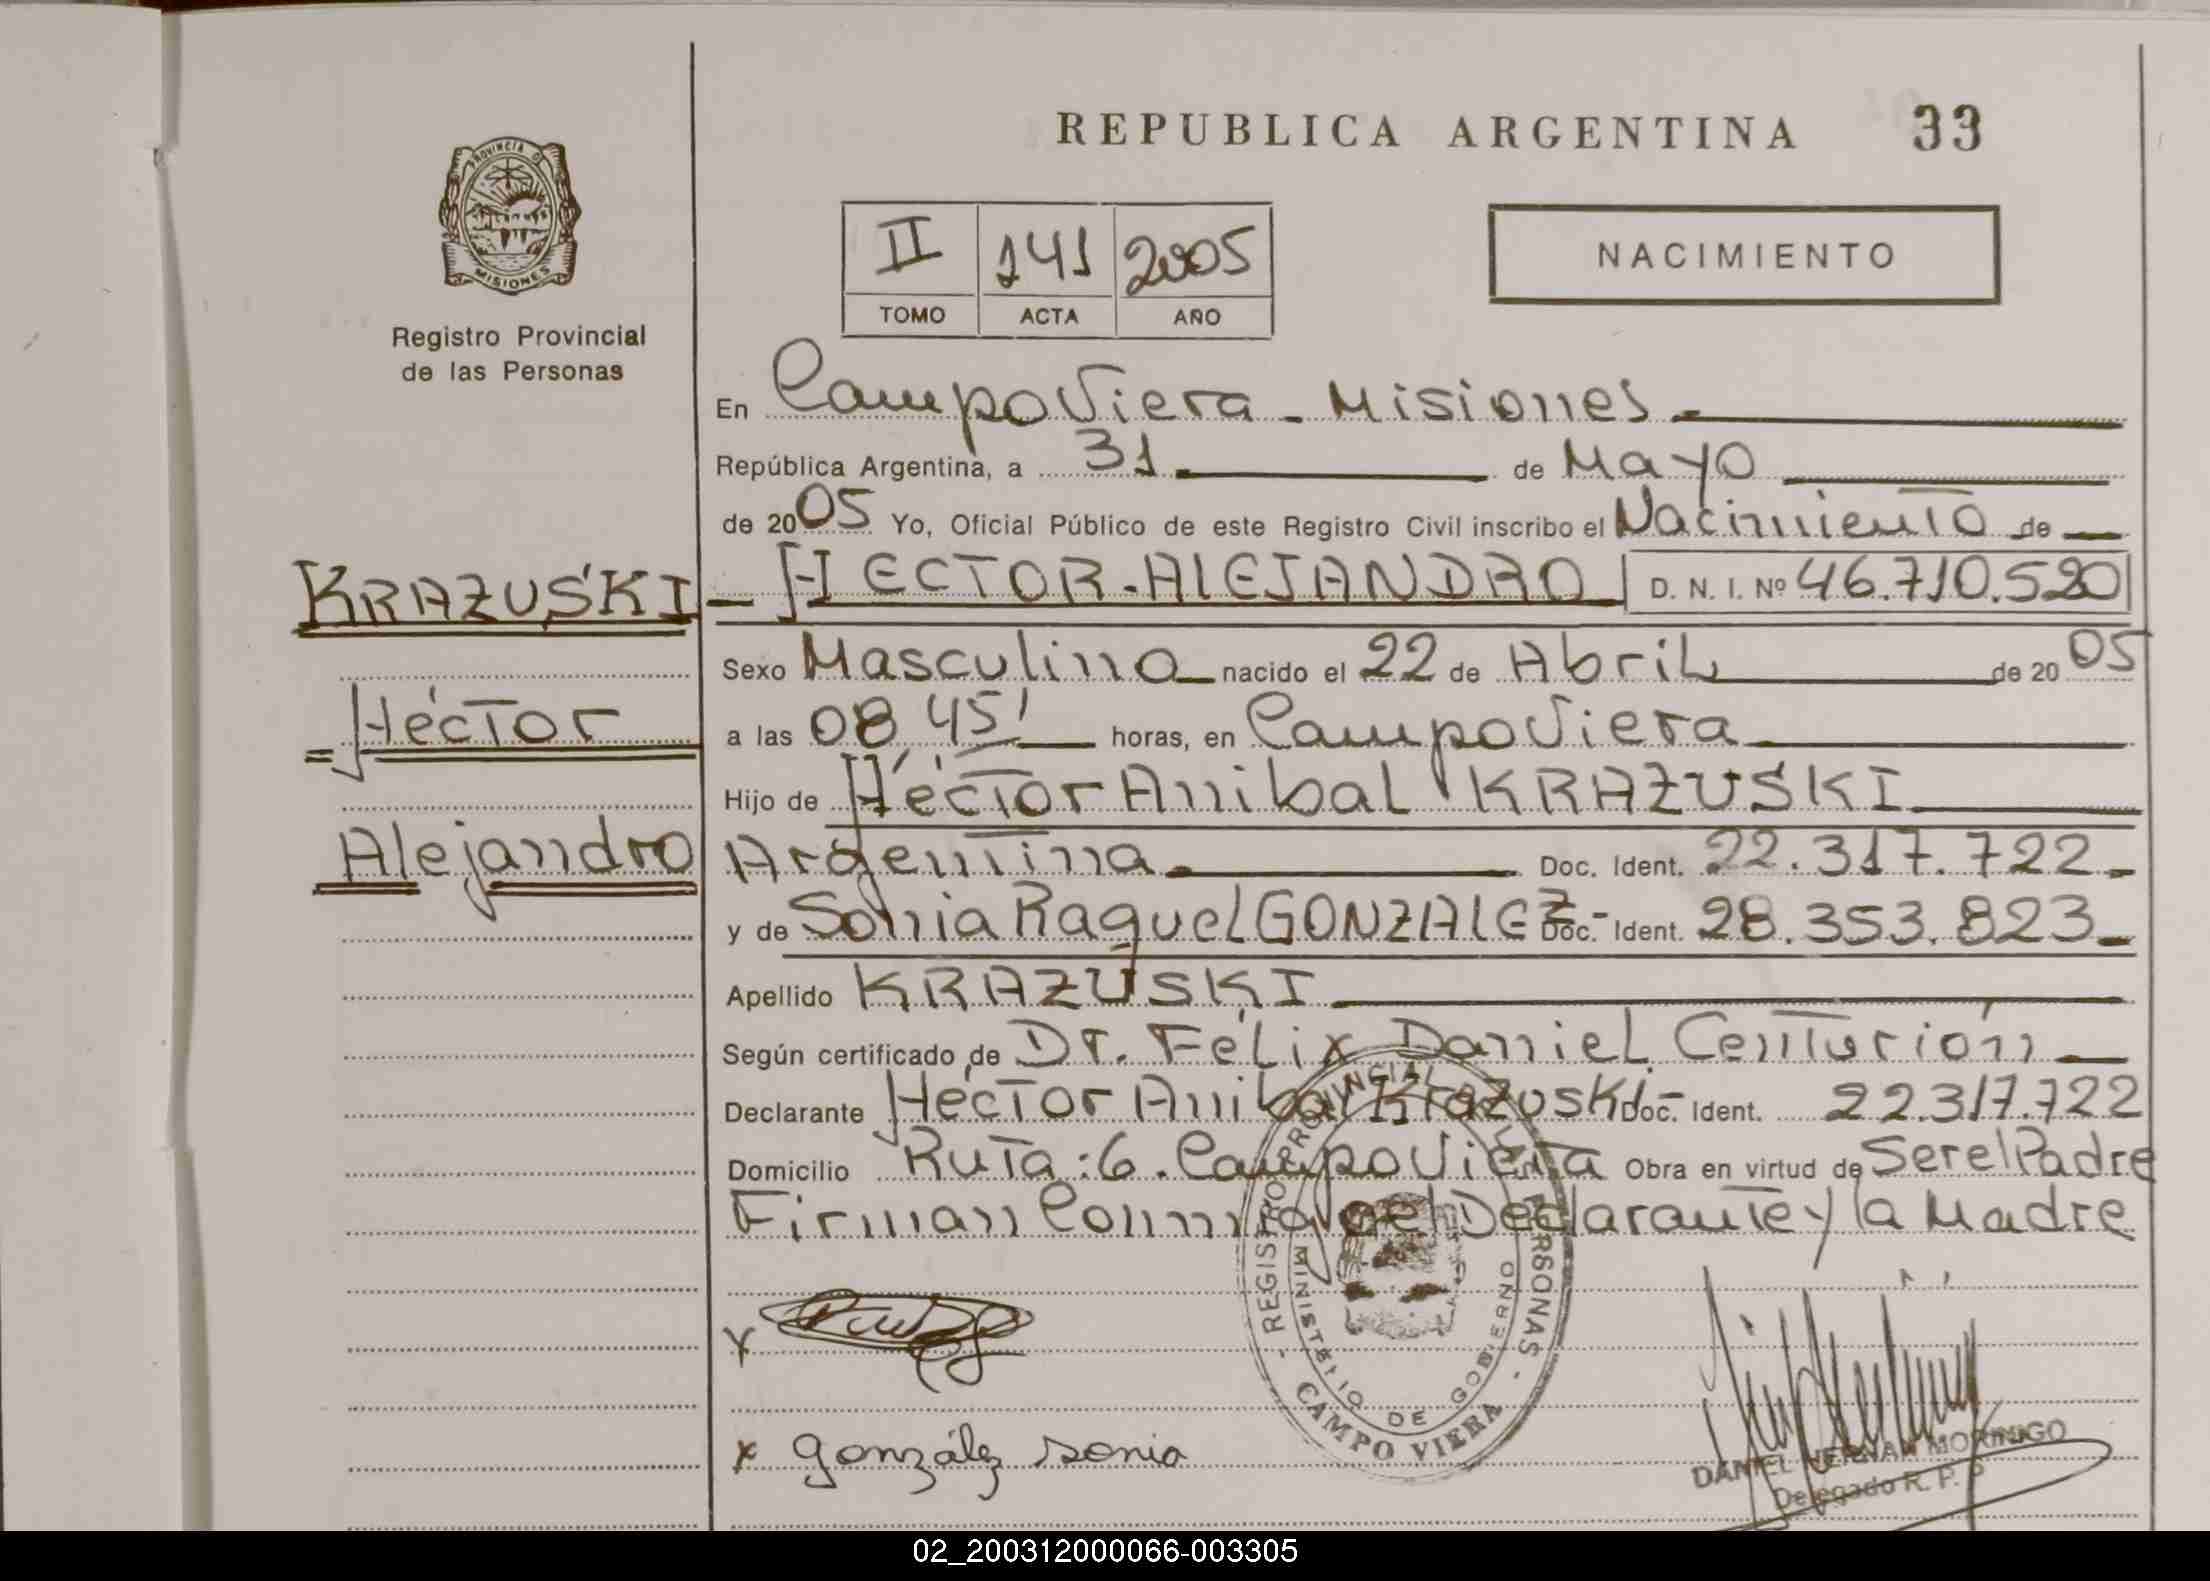 REPUBLICA ARGENTINA 33
PROVINCIA DE
MISIONES
Registro Provincial
de las Personas
II 141 2005
TOMO ACTA AÑO
NACIMIENTO
En Campo Viera - Misiones -
República Argentina, a 31 de Mayo
de 2005 Yo, Oficial Público de este Registro Civil inscribo el Nacimiento de
KRAZUSKI - HECTOR - ALEJANDRO D. N. I. Nº 46.710.520
Sexo Masculino nacido el 22 de Abril de 2005
Héctor
a las 08,45' horas, en Campo Viera
Hijo de Héctor Anibal KRAZUSKI
Alejandro
Argentina Doc. Ident. 22.317.722-
y de Sonia Raquel GONZALEZ- Doc. Ident. 28.353.823-
Apellido KRAZUSKI
Según certificado de Dr. Félix Daniel Centurión
Declarante Héctor Anibal Krazuski- Doc. Ident. 22.317.722
Domicilio Ruta: 6. Campo Viera Obra en virtud de Ser el Padre
Firman Conmigo el Declarante y la Madre
REGISTRO PROVINCIAL PERSONAS
MINISTERIO DE GOBIERNO
CAMPO VIERA
x González Sonia
DANIEL HERNAN MORINIGO
Delegado R. P. P
02_200312000066-003305